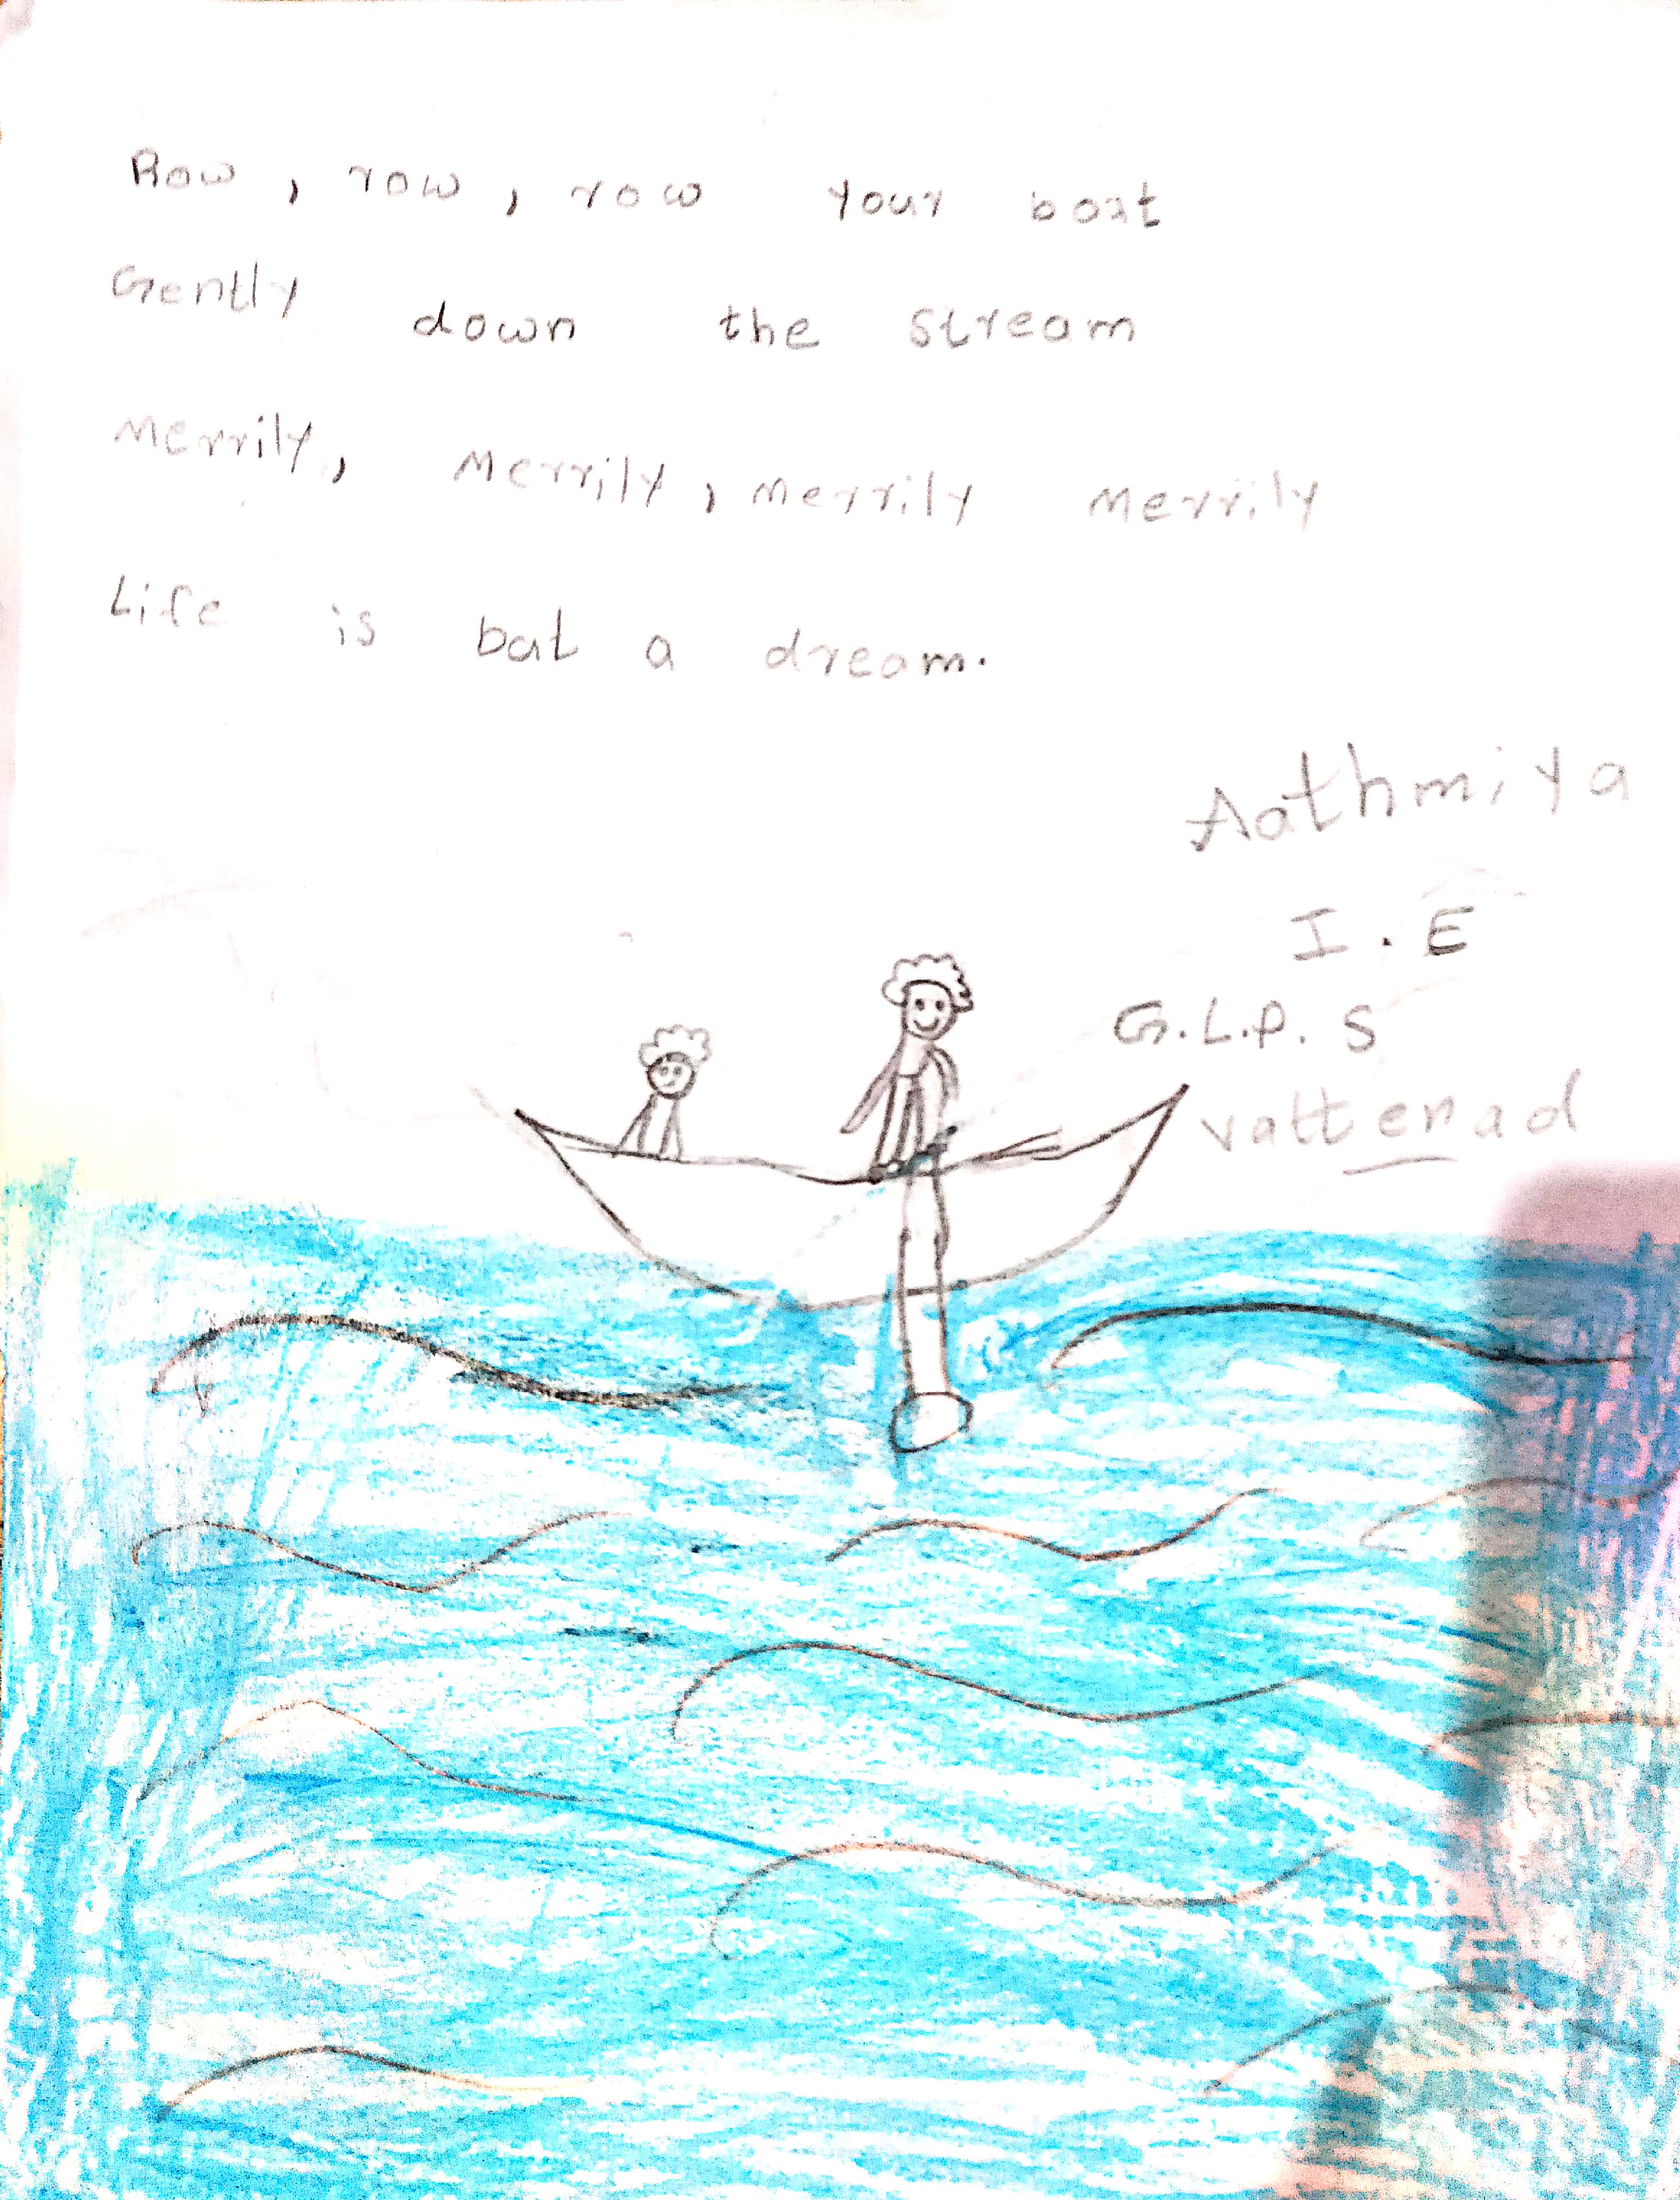 Row, row, row your boat
Gently down the stream
Merrily, Merrily, merrily merrily
Life is but a dream.
Aathmiya
I. E
G.L.P. S
vattenad